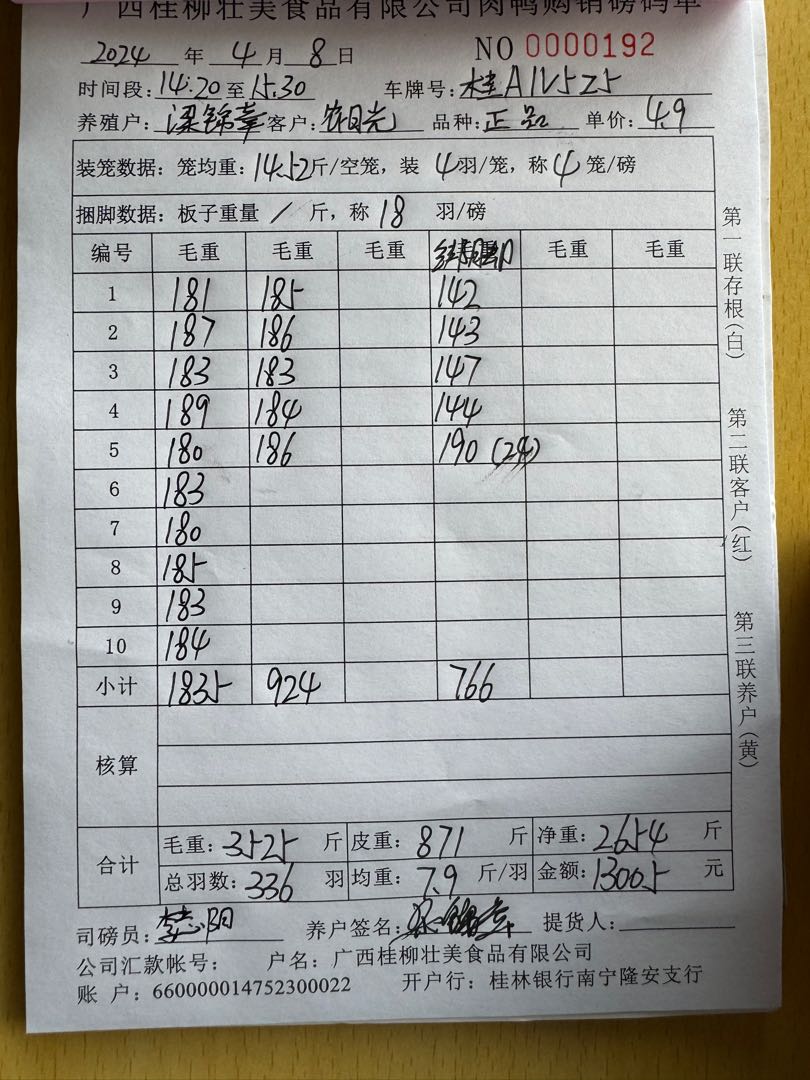 广西桂柳壮美食品有限公司肉鸭购销磅码单
2024 年 4 月 8 日 NO 0000192
时间段:14:20至15:30 车牌号:桂A1V525
养殖户:梁锦幸 客户:农日光 品种:正品 单价:4.9
装笼数据:笼均重:14.52斤/空笼,装 4羽/笼,称4 笼/磅
捆脚数据:板子重量 / 斤,称 18 羽/磅
编号 毛重 毛重 毛重 毛重 毛重
1 181 185 142
2 187 186 143
3 183 183 147
4 189 184 144
5 180 186 190 (24)
6 183
7 180
8 185
9 183
10 184
小计 1835 924 766
核算
合计 毛重:3525 斤 皮重:871 斤 净重:2654 斤
总羽数:336 羽 均重:7.9 斤/羽 金额:13005 元
司磅员: 养户签名:梁锦幸 提货人:
公司汇款帐号: 户名:广西桂柳壮美食品有限公司
账 户:660000014752300022 开户行:桂林银行南宁隆安支行
第一联存根(白)
第二联客户(红)
第三联养户(黄)